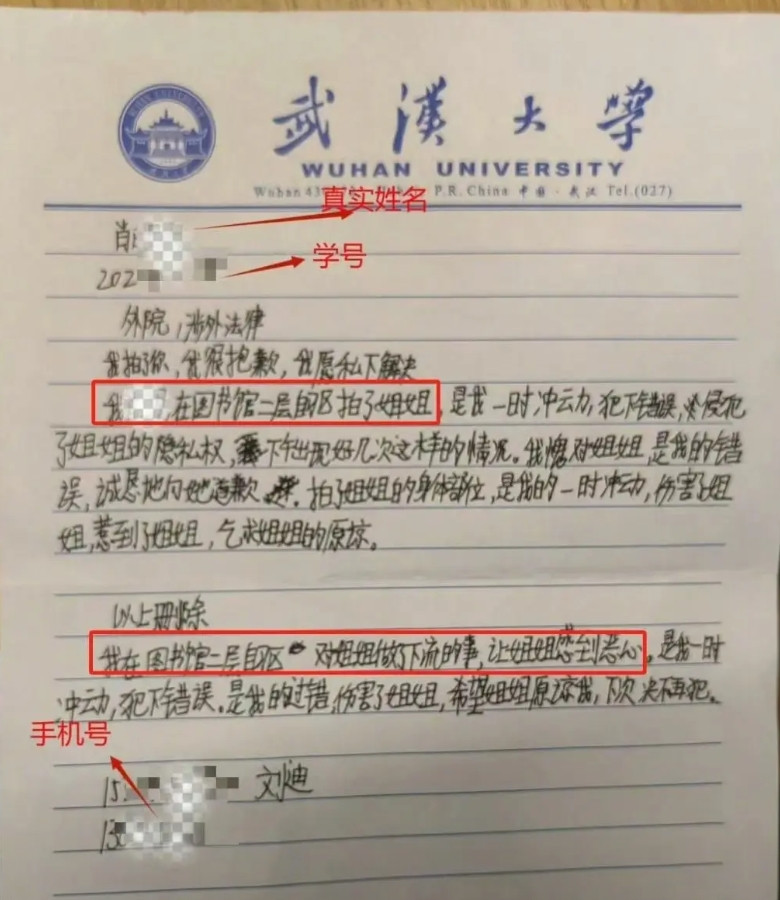 武漢大学
WUHAN UNIVERSITY
Wuhan 43 P.R. China 中国·武汉 Tel.(027)
真实姓名
肖
学号
202
外院，涉外法律
我拍了你，我很抱歉，我愿私下解决
我 在图书馆二层自习区拍了姐姐，是我一时冲动，犯下错误，侵犯
了姐姐的隐私权，下午出现好几次这样的情况。我愧对姐姐，是我的错
误，诚恳地向她道歉。拍了姐姐的身体部位，是我的一时冲动，伤害了姐
姐，惹到了姐姐，乞求姐姐的原谅。
以上删除
我在图书馆二层自习区 对姐姐做了下流的事，让姐姐感到恶心。是我一时
冲动，犯下错误。是我的过错，伤害了姐姐，希望姐姐原谅我，下次决不再犯。
手机号
15 刘迪
13